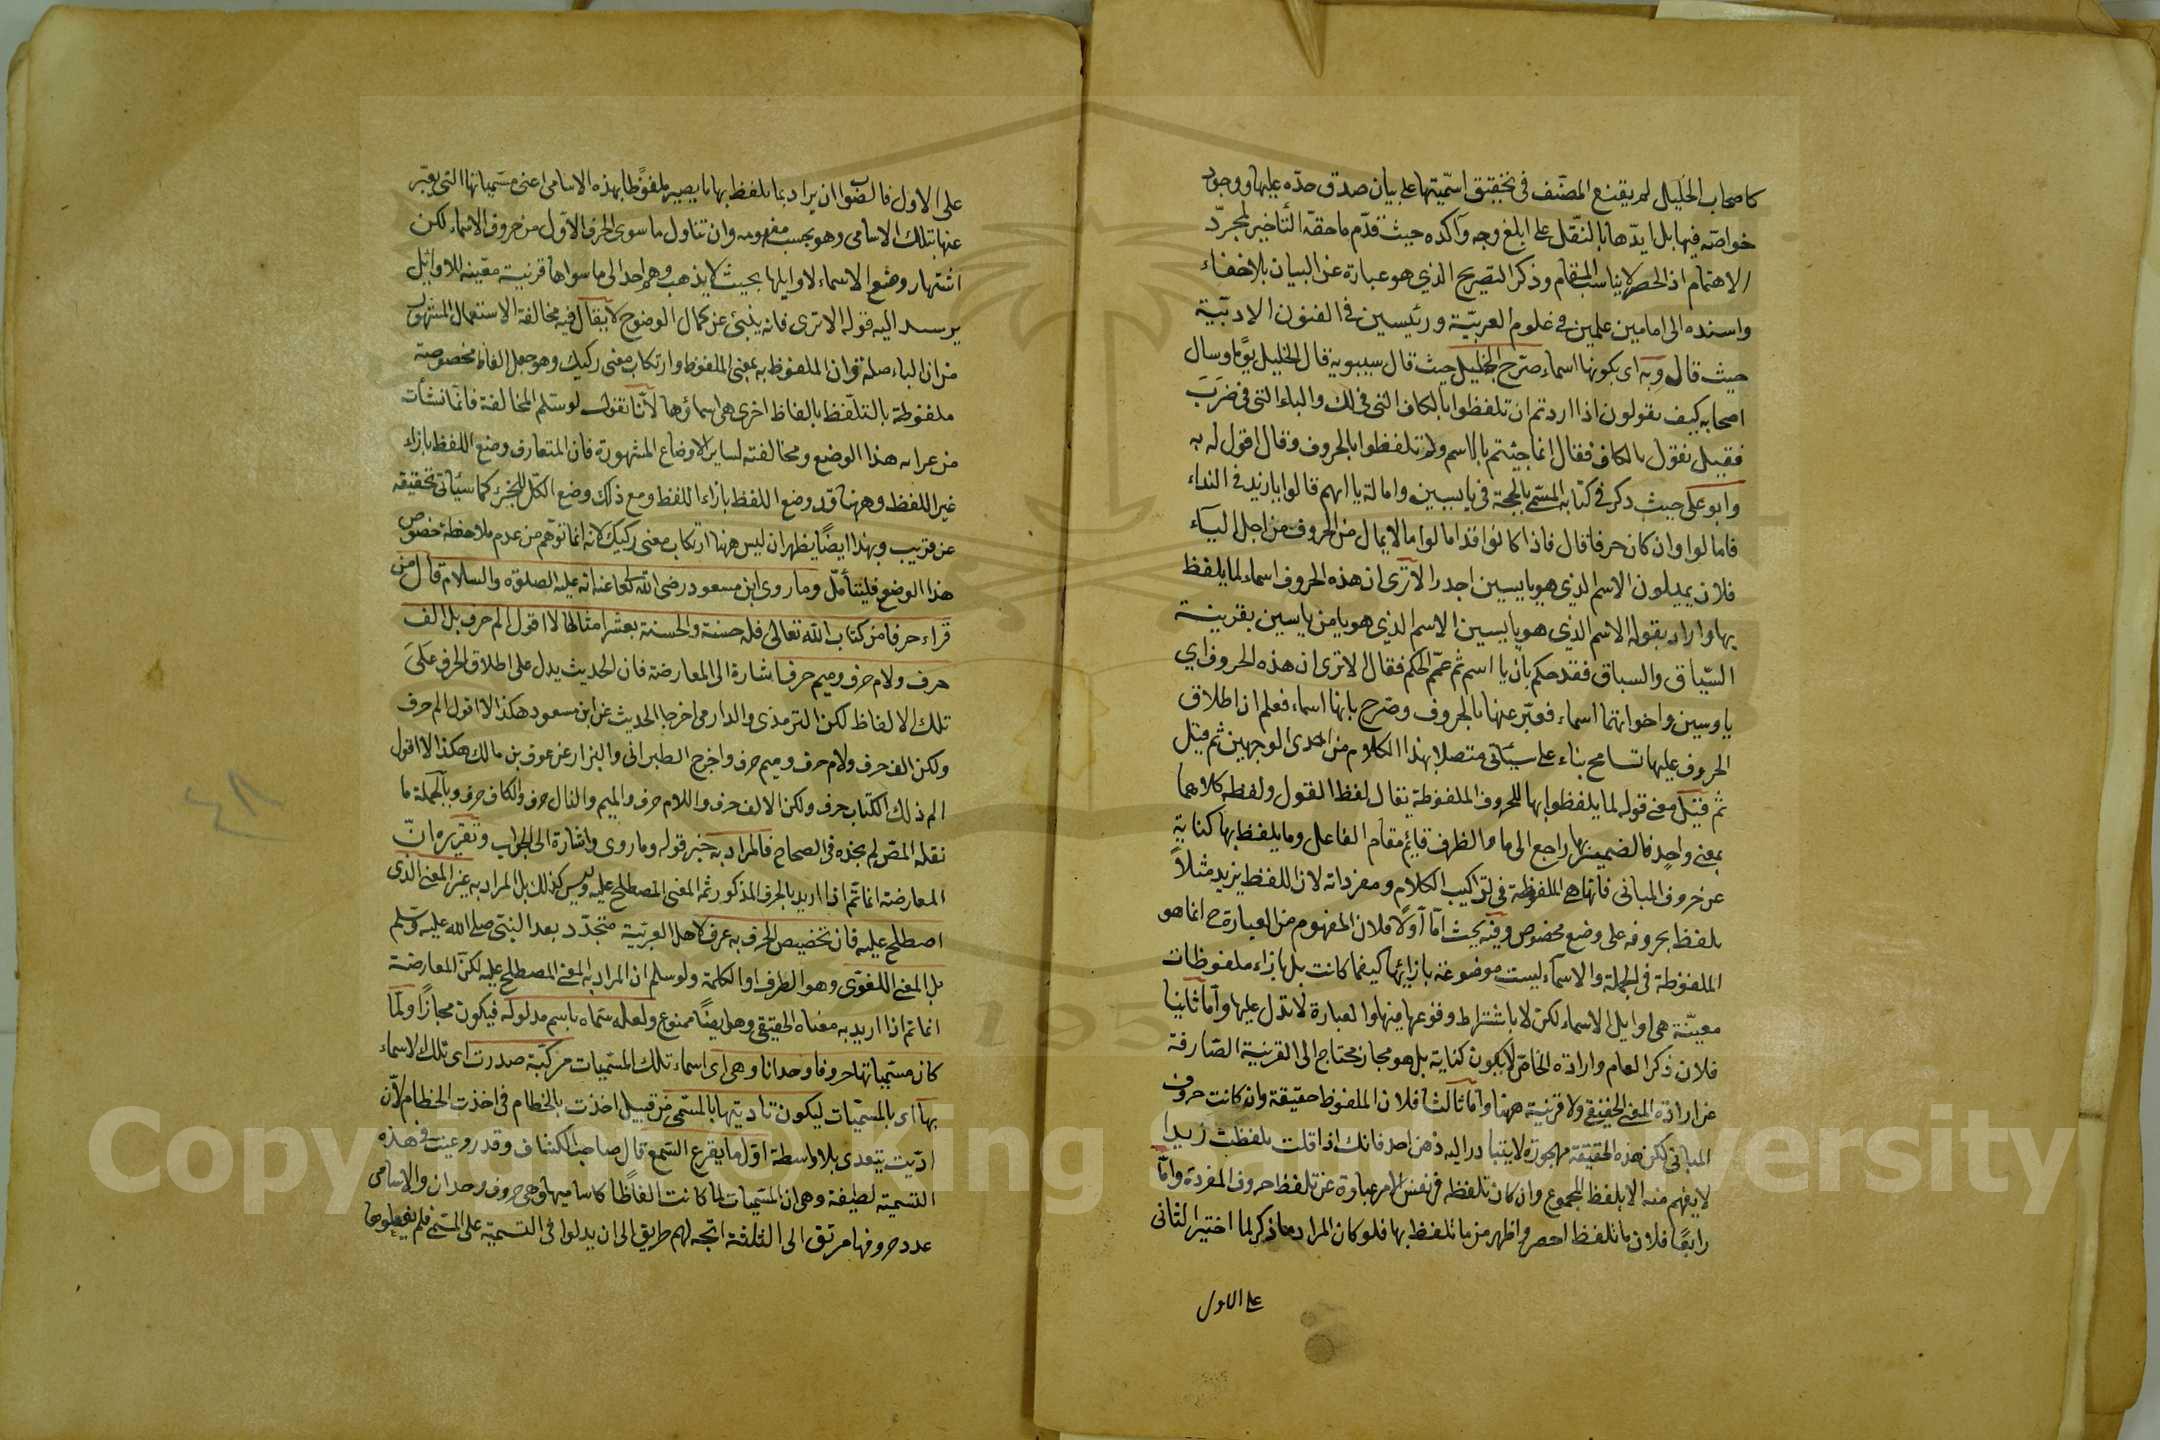 كاصحاب الخليل لم يقنع المصنف في تحقيق اسميتها على بيان صدق حده عليها ووجود
خواصه فيها بل ايدها بالنقل على ابلغ وجه وآكده حيث قدم ما حقه التأخير لمجرد
الاهتمام اذ الحصر لا يناسب المقام وذكر التصريح الذي هو عبارة عن البيان بلا خفاء
واسنده الى امامين علمين في علوم العربية ورئيسين في الفنون الادبية
حيث قال وبه اى بكونها اسماء صرح الخليل حيث قال سيبويه قال الخليل يوما وسال
اصحابه كيف تقولون اذا اردتم ان تلفظوا بالكاف التى فى لك والباء التى فى ضرب
فقيل نقول بالكاف فقال انما جيئتم بالاسم ولم تلفظوا بالحروف وقال اقول له به
وابو على حيث ذكر في كتابه المسمى بالحجة في يا يسين وامالة يا انهم قالوا يا زيد في النداء
فامالوا وان كان حرفا قال فاذا كانوا قد امالوا مالا يمال من الحروف من اجل الياء
فلان يميلون الاسم الذي هو يا يسين اجدر الا ترى ان هذه الحروف اسماء لما يلفظ
بها واراد بقوله الاسم الذى هو يا يسين الاسم الذي هو يا من ياسين بقرينة
السياق والسباق فقد حكم بان يا اسم ثم عمم الحكم فقال الا ترى ان هذه الحروف اي
يا وسين واخواتهما اسماء فعبر عنها بالحروف وصرح بانها اسماء فعلم ان اطلاق
الحروف عليها تسامح بناء على سيئاتى متصلا بهذا الكلام من احدى الوجهين ثم قيل
ثم قيل معنى قوله لما يلفظوا بها للحروف الملفوظة يقال لفظ القول ولفظه كلاهما
بمعنى واحد فالضمير بها راجع الى ما والظرف قايم مقام الفاعل وما يلفظ بها كناية
عن حروف المبانى فانها هى الملفوظة فى تراكيب الكلام ومفرداته لان اللفظ يزيد مثلا
تلفظ بحروفه على وضع مخصوص وفيه بحث اما اولا فلان المفهوم من العبارة ح انما هو
الملفوظة في الجملة والاسماء ليست موضوعة بازائها كيفما كانت بل بازاء ملفوظات
معينة هى اوايل الاسماء لكن لا باشتراط وقوعها فيها والعبارة لا تدل عليها واما ثانيا
فلان ذكر العام وارادة الخاص لا يكون كناية بل هو مجاز محتاج الى القرينة الصارفة
عن ارادة المعنى الحقيقى ولا قرينة ههنا واما ثالثا فلان الملفوظ حقيقة وان كانت حروف
المبانى لكن هذه الحقيقة مهجورة لا يتبادر اليه ذهن احد فانك اذا قلت تلفظت زيدا
لا يفهم منه الا بلفظ المجموع وان كان تلفظه في نفس الامر عبارة عن تلفظ حروف المفردة واما
رابعا فلان ما تلفظ احصر واظهر من ما تلفظ بها فلو كان المراد ما ذكر لما اختير الثانى
على الاول
على الاول فالصواب ان يراد بما تلفظ بها ما يصير ملفوظا بهذه الاسامى اعنى مسمياتها التى يعبر
عنها بتلك الاسامى وهو بحسب مفهومه وان تناول ما سوى الحرف الاول من حروف الاسماء لكن
اشتهار وضع الاسماء لاوايلها بحيث لا يذهب وهم احد الى ما سواها قرينة معينة للاوائل
يرسد اليه قوله الا ترى فانه ينبئ عن كمال الوضوح لا يقال فيه مخالفة الاستعمال المشهور
من ان الباء صلة وان الملفوظ به بمعنى الملفوظ وارتكاب معنى ركيك وهو جعل الفاظ مخصوصة
ملفوظة بالتلفظ بالفاظ اخرى هى اسماؤها لانا نقول لو سلم المخالفة فانما نشأت
من غرابه هذا الوضع ومخالفته لساير الاوضاع المشهورة فان المتعارف وضع اللفظ بازاء
غير اللفظ وههنا قد وضع اللفظ بازاء اللفظ ومع ذلك وضع الكل للجزء كما سيئاتى تحقيقه
عن قريب وبهذا ايضا يظهر ان ليس ههنا ارتكاب معنى ركيك لانه انما توهم من عدم ملاحظة خصوص
هذا الوضع فليتأمل وما روى ابن مسعود رضى الله تعا عنه انه عليه الصلوة والسلام قال من
قراء حرفا من كتاب الله تعالى فله حسنة والحسنة بعشر امثالها لا اقول الم حرف بل الف
حرف ولام حرف وميم حرف اشارة الى المعارضة فان الحديث يدل على اطلاق الحرف على
تلك الالفاظ لكن الترمذى والدارمى اخرجا الحديث عن ابن مسعود هكذا لا اقول الم حرف
ولكن الف حرف ولام حرف وميم حرف واخرج الطبرانى والبزار عن عوف بن مالك هكذا لا اقول
الم ذلك الكتاب حرف ولكن الالف حرف واللام حرف والميم والذال حرف والكاف حرف وبالجملة ما
نقله المص لم نجده فى الصحاح فالمراد به خبر قوله وما روى واشارة الى الجواب وتقريره ان
المعارضة انما تتم اذا اريد بالحرف المذكور ثمه المعنى المصطلح عليه وليس كذلك بل المراد به غير المعنى الذى
اصطلح عليه فان تخصيص الحرف به عرف لاهل العربية متجدد بعد النبى صلى الله عليه وسلم
بل المعنى اللغوى وهو الطرف او الكلمة ولو سلم ان المراد به المعنى المصطلح عليه لكن المعارضة
انما تم اذا اريد به معناه الحقيقى وهو ايضا ممنوع ولعله سماه باسم مدلوله فيكون مجازا ولما
كان مسمياتها حروفا وحدانا وهى اى اسماء تلك المسميات مركبة صدرت اى تلك الاسماء
بها اى بالمسميات ليكون تاديتها بالمسمى من قبيل اخذت بالخطام فى اخذت الخطام لان
اديت يتعدى بلا واسطة اول ما يقرع السمع قال صاحب الكشاف وقد روعيت فى هذه
التسمية لطيفة وهى ان المسميات لما كانت الفاظا كاساميها وهى حروف وحدان والاسامى
عدد حروفها مرتق الى الثلثة اتجه لهم طريق الى ان يدلوا فى التسمية على المسمى فلم يغفلوها
٤٨
Copyright © King Saud University
1957